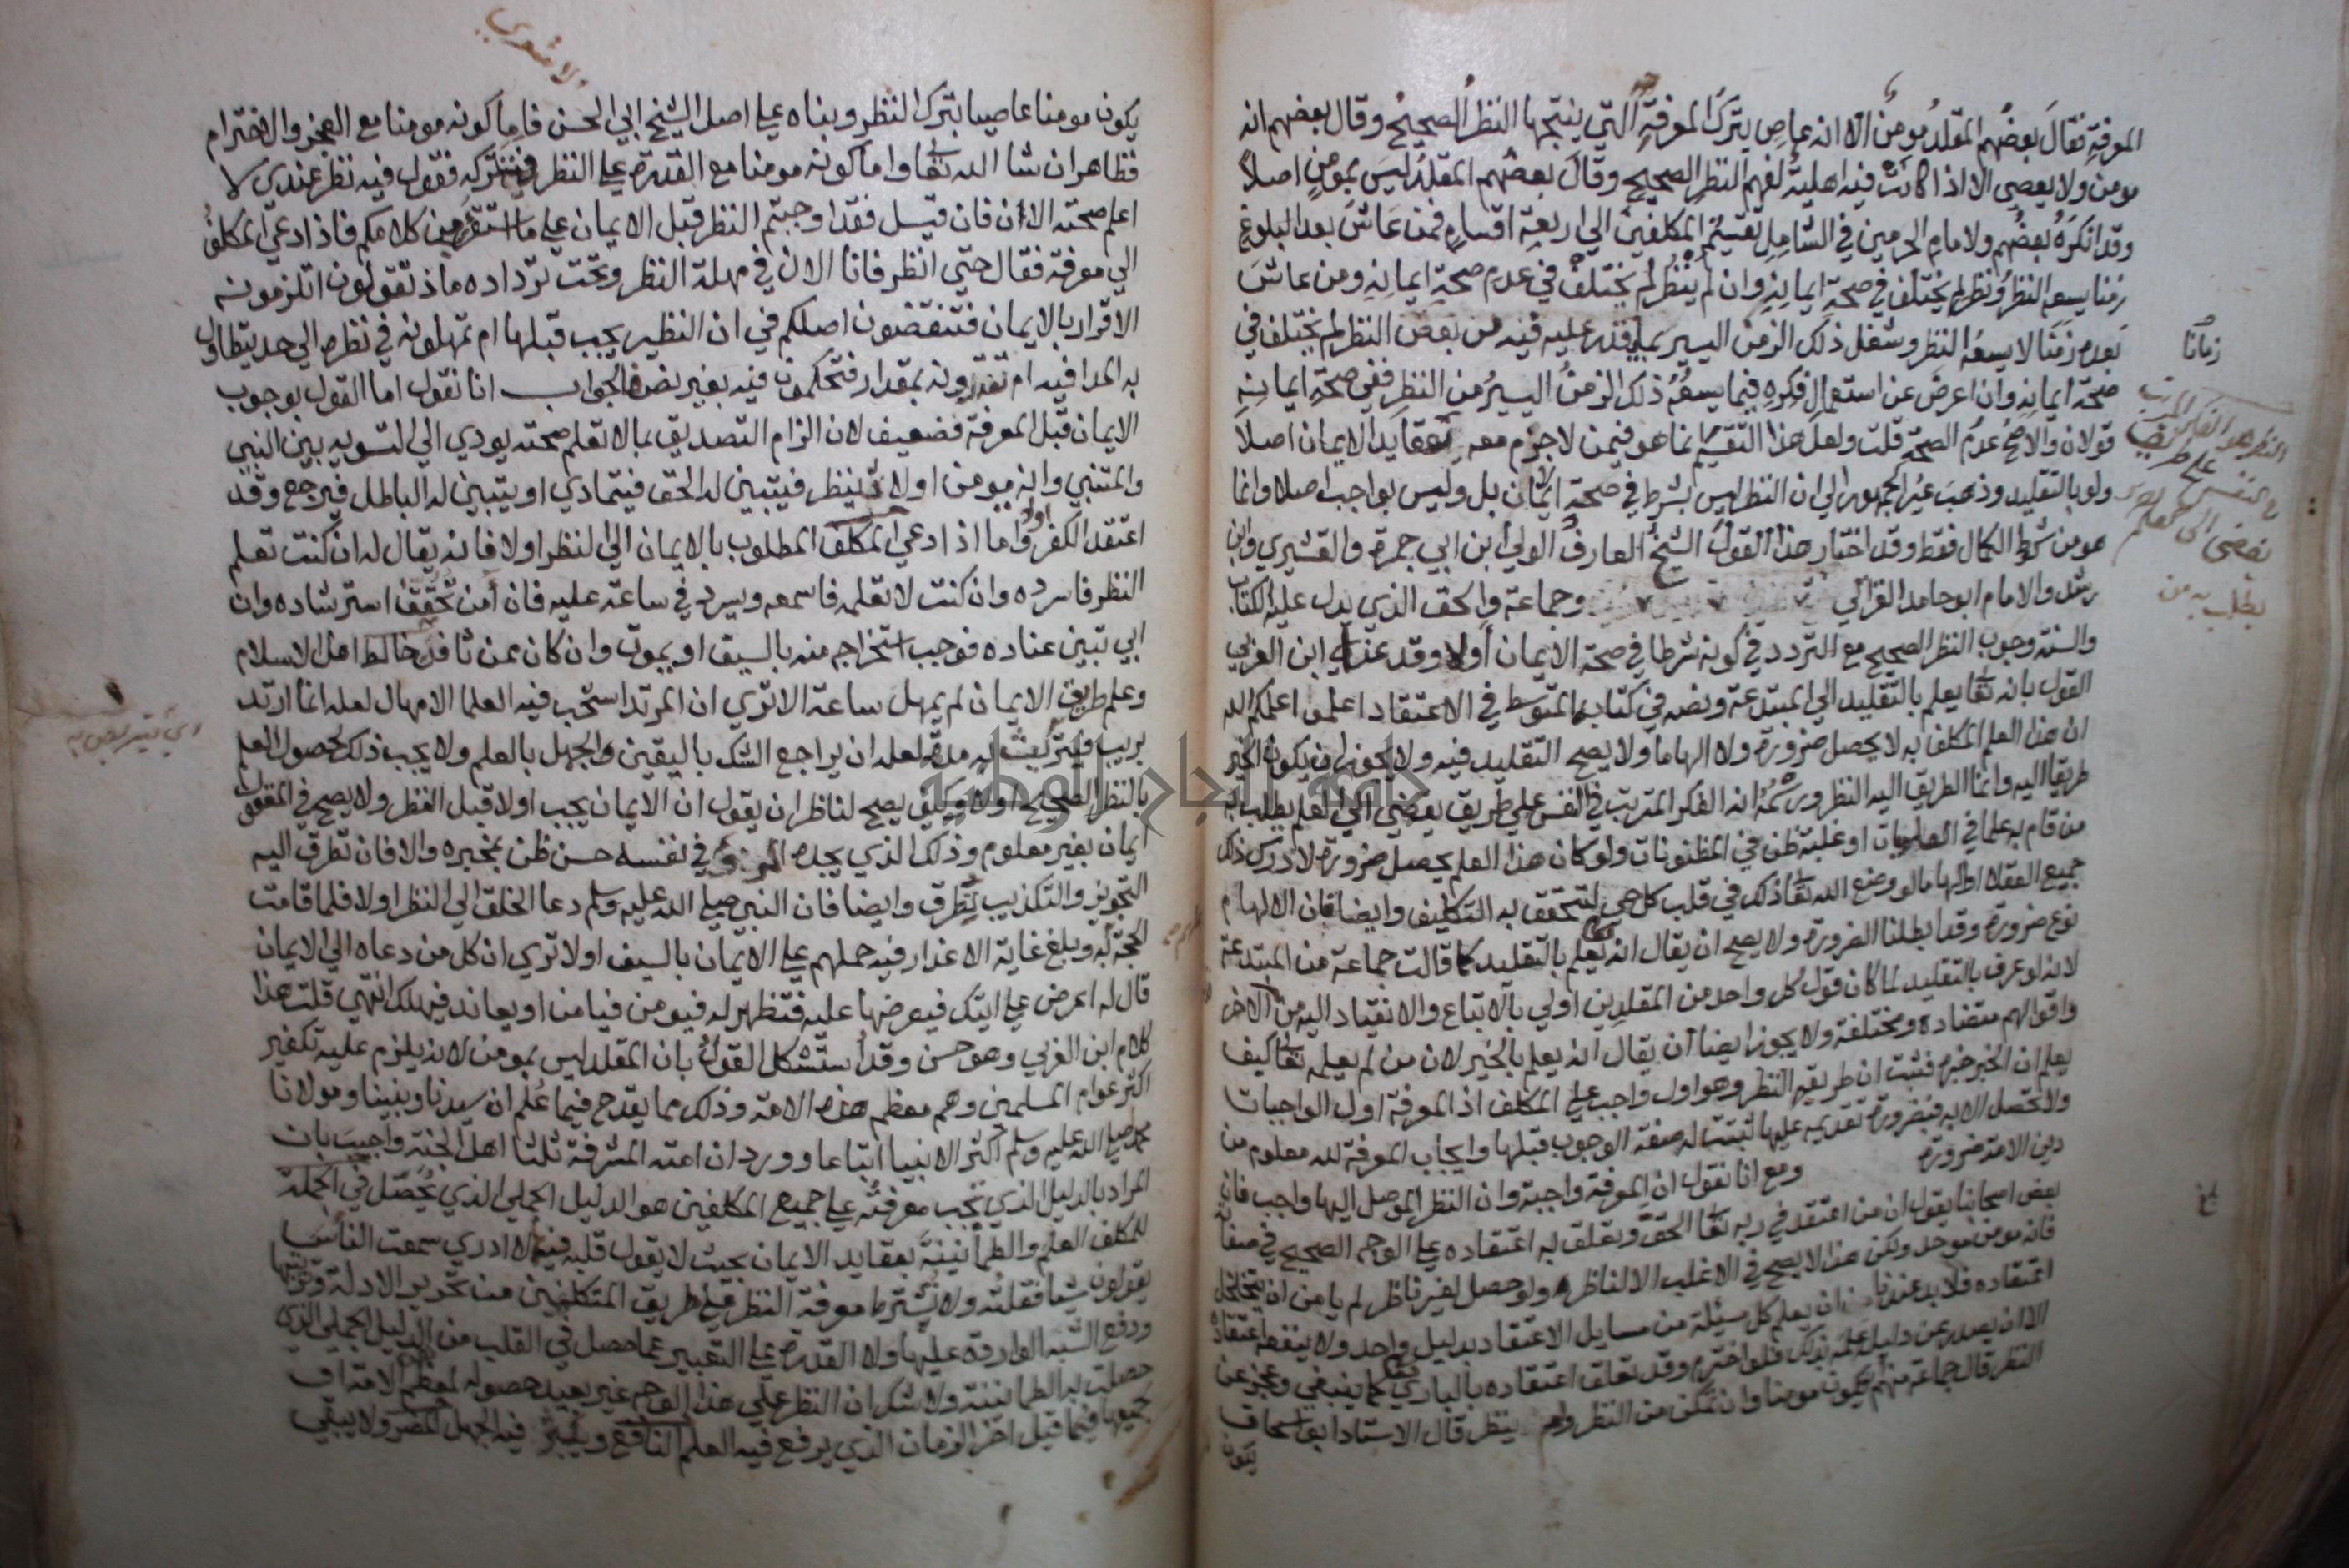 المعرفة فقال بعضهم المقلد مومن الا انه عاص بترك المعرفة التي ينتجها النظر الصحيح وقال بعضهم انه
مومن ولا يعصي الا اذا كانت فيه اهلية لفهم النظر الصحيح وقال بعضهم المقلد ليس بمومن اصلا
وقد انكره بعضهم ولامام الحرمين في الشامل تقسيم المكلفين الي اربعة اقسام فمن عاش بعد البلوغ
زمنا يسعه النظر ونظر لم يختلف في صحة ايمانه وان لم ينظر لم يختلف في عدم صحة ايمانه ومن عاش
بعده زمنا لا يسعه النظر وشغل ذلك الزمن اليسير بما يقدر عليه فيه من بعض النظر لم يختلف في
صحة ايمانه وان اعرض عن استعمال فكره فيما يسعه ذلك الزمن اليسير من النظر ففي صحة ايمانه
قولان والاصح عدم الصحة قلت ولعل هذا التقسيم انما هو فيمن لا جزم معه بعقايد الايمان اصلا
ولو بالتقليد وذهب غير الجمهور الي ان النظر ليس بشرط في صحة الايمان بل وليس بواجب اصلا وانما
هو من شروط الكمال فقط وقد اختار هذا القول الشيخ العارف الولي ابن ابي جمرة والقشيري وابن
رشد والامام ابو حامد الغزالي وجماعة والحق الذي يدل عليه الكتاب
والسنة وجوب النظر الصحيح مع التردد في كونه شرطا في صحة الايمان اولا وقد عزا ابن العربي
القول بانه تعا يعلم بالتقليد الي المبتدعة ونصه في كتابه المتوسط في الاعتقاد اعلموا علمكم الله
ان هذا العلم المكلف به لا يحصل ضرورة ولا الهاما ولا يصح التقليد فيه ولا يجوز ان يكون الخبر
طريقا اليه وانما الطريق اليه النظر ورسمه انه الفكر المترتب في النفس علي طريق يفضي الي العلم يطلب به
من قام به علما في العلوميات او غلبة ظن في المظنونات ولو كان هذا العلم يحصل ضرورة لادرك ذلك
جميع العقلاء او الهاما لوضع الله تعا ذلك في قلب كل حي ليتحقق به التكليف وايضا فان الالهام
نوع ضرورة وقد ابطلنا الضرورة ولا يصح ان يقال انه يعلم بالتقليد كما قالت جماعة من المبتدعة
لانه لو عرف بالتقليد لما كان قول كل واحد من المقلدين اولي بالاتباع والانقياد اليه من الاخر
واقوالهم متضادة ومختلفة ولا يجوز ايضا ان يقال انه يعلم بالخبر لان من لم يعلمه تعا كيف
يعلم ان الخبر خبره فثبت ان طريقه النظر وهو اول واجب علي المكلف اذ المعرفة اول الواجبات
ولا تحصل الا به فبضرورة تقديمه عليها ثبتت له صفة الوجوب قبلها وايجاب المعرفة لله معلوم من
دين الامة ضرورة ومع انا نقول ان المعرفة واجبة وان النظر الموصل اليها واجب فان
بعض اصحابنا يقول ان من اعتقد في ربه تعا الحق وتعلق به اعتقاده علي الوجه الصحيح في صفاته
فانه مومن موحد ولكن هذا لا يصح في الاغلب الا لناظر ولو حصل لغير ناظر لم يامن ان يتخلخل
اعتقاده فلا بد عندنا ان يعلم كل مسئلة من مسايل الاعتقاد بدليل واحد ولا ينفعه اعتقاده
الا ان يصدر عن دليل علمه بذلك فلو اخترم وقد تعلق اعتقاده بالباري كما ينبغي وعجز عن
النظر قال جماعة منهم يكون مومنا وان تمكن من النظر ولم ينظر قال الاستاذ ابو اسحاق
يكون
زمانا
النظر هو الفكر المرتب
في النفس علي طريق
يفضي الي العلم
يطلب به من
يكون مومنا عاصيا بترك النظر وبناه علي اصل الشيخ ابي الحسن فاما كونه مومنا مع العجز والاخترام
الاشعري
فظاهر ان شا الله تعا واما كونه مومنا مع القدرة علي النظر وتركه فقول فيه نظر عندي لا
اعلم صحته الان فان قيل فقد اوجبتم النظر قبل الايمان علي ما استقر من كلامكم فاذا دعي المكلف
الي معرفة فقال حتي انظر فانا الان في مهلة النظر وتحت ترداده ماذا تقولون اتلزمونه
الاقرار بالايمان فتنقضون اصلكم في ان النظر يجب قبلها ام تمهلونه في نظره الي حد يتطاول
به المدا فيه ام تقدرونه بمقدار فتحكمون فيه بغير نص الجواب انا نقول اما القول بوجوب
الايمان قبل المعرفة فضعيف لان الزام التصديق بما لا تعلم صحته يودي الي التسوية بين النبي
والمتنبي وانه يومن اولا ثم ينظر فيتبين له الحق فيتمادي او يتبين له الباطل فيرجع وقد
اعتقد الكفر واما اذا دعي المكلف المطلوب بالايمان الي النظر اولا فانه يقال له ان كنت تعلم
النظر فاسرده وان كنت لا تعلمه فاسمعه ويسرد في ساعة عليه فان امن تحقق استرشاده وان
ابي تبين عناده فوجب استخراجه منه بالسيف او يموت وان كان ممن ثافن خالط اهل الاسلام
وعلم طريق الايمان لم يمهل ساعة الا تري ان المرتد استحب فيه العلما الامهال لعله انما ارتد
لريب فيتربص به مدة لعله ان يراجع الشك باليقين والجهل بالعلم ولا يجب ذلك لحصول العلم
بالنظر الصحيح اولا وكيف يصح لناظر ان يقول ان الايمان يجب اولا قبل النظر ولا يصح في المعقول
ايمان بغير معلوم وذلك الذي يجده المرء في نفسه حسن ظن بمخبره والا فان تطرق اليه
التجويز والتكذيب تطرق وايضا فان النبي صلي الله عليه وسلم دعا الخلق الي النظر اولا فلما قامت
الحجة به وبلغ غاية الاعذار فيه حملهم علي الايمان بالسيف اولا تري ان كل من دعاه الي الايمان
قال له اعرض علي ايتك فيعرضها عليه فتظهر له فيومن فيامن او يعاند فيهلك انتهي قلت هذا
كلام ابن العربي وهو حسن وقد استشكل القول بان المقلد ليس بمومن لانه يلزم عليه تكفير
اكثر عوام المسلمين وهم معظم هذه الامة وذلك مما يقدح فيما علم ان سيدنا ونبينا ومولانا
محمد صلي الله عليه وسلم اكثر الانبيا اتباعا وورد ان امته المشرفة ثلثا اهل الجنة واجيب بان
المراد بالدليل الذي يجب معرفته علي جميع المكلفين هو الدليل الجملي الذي يحصل في الجملة
للمكلف العلم والطمأنينة بعقايد الايمان بحيث لا يقول قلبه فيها لا ادري سمعت الناس
يقولون شيا فقلته ولا يشترط معرفة النظر علي طريق المتكلمين من تحرير الادلة وترتيبها
ودفع الشبه الواردة عليها ولا القدرة علي التعبير عما حصل في القلب من الدليل الجملي الذي
حصلت به الطمانينة ولا شك ان النظر علي هذا الوجه غير بعيد حصوله لمعظم الامة او
جميعها فيما قبل اخر الزمان الذي يرفع فيه العلم النافع ويكثر فيه الجهل المضر ولا يبقي
جامعة النجاح الوطنية